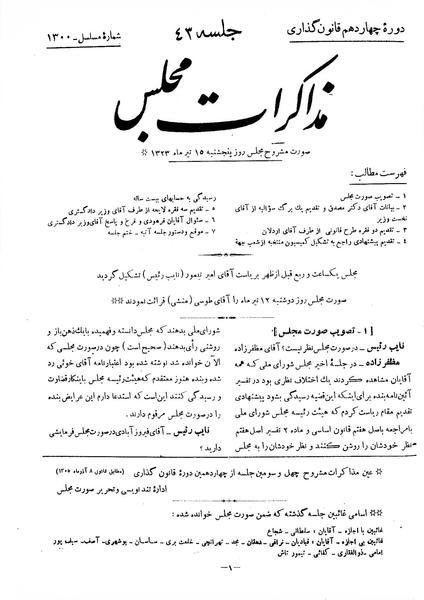 دورهٔ چهاردهم قانون گذاری
جلسه ۴۳
شمارهٔ مسلسل - ۱۳۰۰
مذاکرات مجلس
صورت مشروح مجلس روز پنجشنبه ۱۵ تیر ماه ۱۳۲۳ ※
فهرست مطالب:
۱ - تصویب صورت مجلس
۲ - بیانات آقای دکتر مصدق و تقدیم یك برگ سؤالیه از آقای
نخست وزیر
۳ - تقدیم دو فقره طرح قانونی از طرف آقای اردلان
۴ - تقدیم پیشنهادی راجع به تشکیل کمیسیون منتخبه از شعب جهة
رسیدگی به حسابهای بیست ساله
۵ - تقدیم سه فقره لایحه از طرف آقای وزیر دادگستری
۶ - سئوال آقایان فرهودی و فرخ و پاسخ آقای وزیر دادگستری
۷ - موقع و دستور جلسه آتیه - ختم جلسه
مجلس یکساعت و ربع قبل از ظهر بریاست آقای امیر تیمور (نایب رئیس) تشکیل گردید
صورت مجلس روز دوشنبه ۱۲ تیر ماه را آقای طوسی (منشی) قرائت نمودند ※
[ ۱ - تصویب صورت مجلس ]
نایب رئیس - در صورت مجلس نظر نیست؟ آقای مظفرزاده
مظفرزاده - در جلسهٔ اخیر مجلس شورای ملی که همه
آقایان مشاهده کردند یك اختلاف نظری بود در تفسیر
آئین‌نامه بنده برای اینکه این قضیه رسیدگی بشود پیشنهادی
تقدیم مقام ریاست کردم که هیئت رئیسه مجلس شورای ملی
با مراجعه باصل هفتم قانون اساسی و ماده ۲ تفسیر اصل هفتم
نظر خودشان را روشن کنند و نظر خودشان را به مجلس
شورای ملی بدهند که مجلس دانسته و فهمیده با یك ذهن باز و
روشنی رأی بدهند (صحیح است) چون در صورت مجلسی که
الآن خوانده شد نوشته شده بود اعتبارنامه آقای خوئی رد
شده و بنده هنوز معتقدم که هیئت رئیسه مجلس باینکار قضاوت
و رسیدگی کنند این است که استدعا دارم این عرایض بنده
را در صورت مجلس مرقوم دارند.
نایب رئیس - آقای فیروزآبادی در صورت مجلس فرمایشی
دارید؟
※ عین مذاکرات مشروح چهل و سومین جلسه از چهاردهمین دورهٔ قانون گذاری (مطابق قانون ۸ آذر ماه ۱۳۰۵)
اداره تند نویسی و تحریر صورت مجلس
※ اسامی غائبین جلسه گذشته که ضمن صورت مجلس خوانده شده:
غائبین با اجازه - آقایان: سلطانی - شجاع
غائبین بی اجازه - آقایان: قبادیان - نراقی - دهقان - مجد - تهرانچی - خلعت بری - ساسان - بوشهری - آصف - سیف پور
امامی - ذوالفقاری - کفائی - تیمور تاش
-۱-